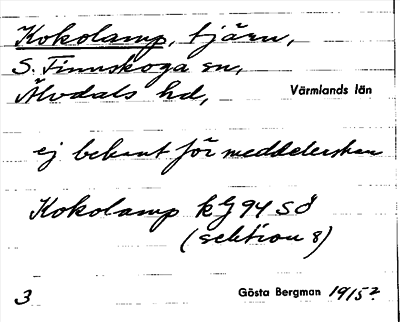 Kokolamp, tjärn,
S. Finnskoga sn,
Älvdals hd, Värmlands län
ej bekant för meddelerskan
Kokolamp kg 94 SÖ
(sektion 8)
3 Gösta Bergman 1915?